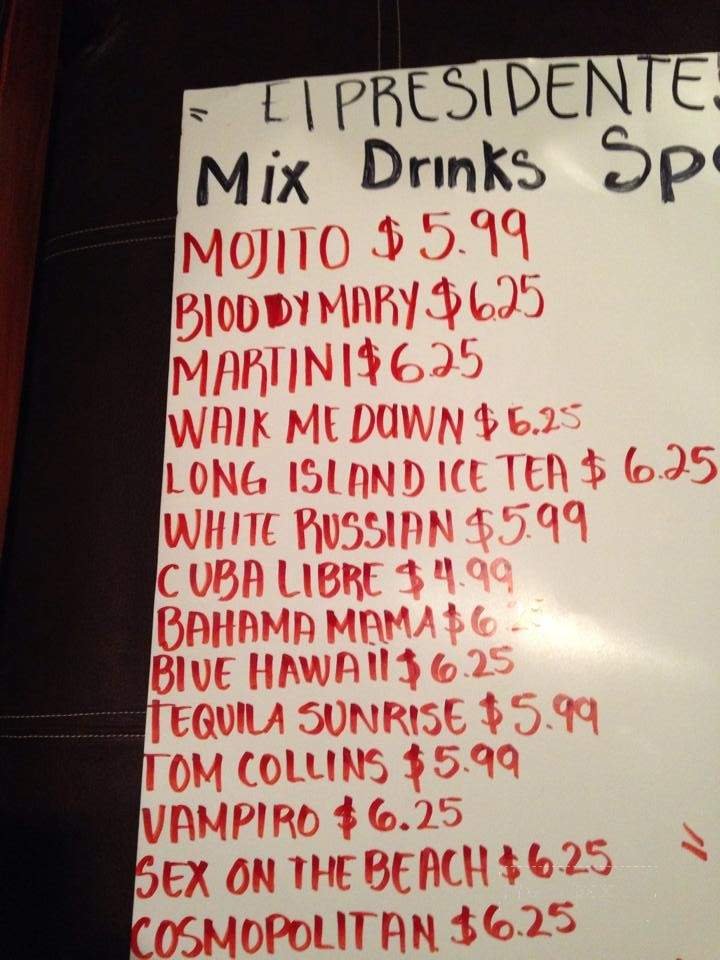 = El PRESIDENTE
Mix Drinks
MOJITO $5.99
BlOODY MARY $6.25
MARTINI $6.25
WAlK ME DaWN $6.25
LONG ISLAND ICE TEA $6.25
WHITE RUSSIAN $5.99
CUBA LIBRE $4.99
BAHAMA MAMA
BlUE HAWAII $6.25
TEQUILA SUNRISE $5.99
TOM COLLINS $5.99
VAMPIRO $6.25
SEX ON THE BEACH $6.25
COSMOPOLITAN $6.25